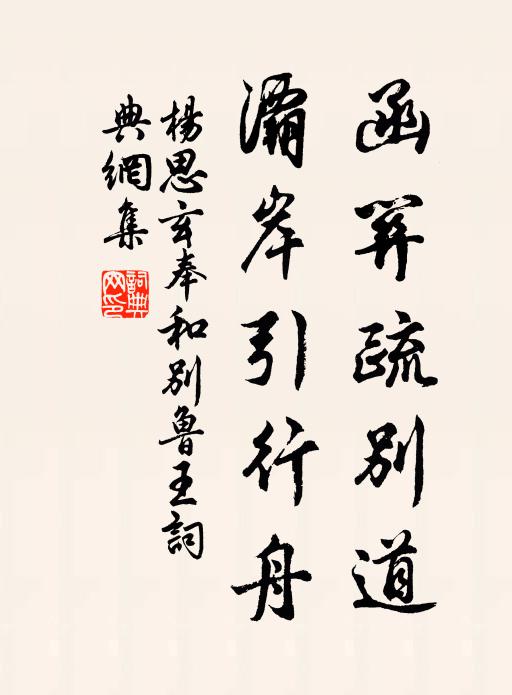 函關疏別道
灞岸引行舟
楊思玄奉和別魯王詞
典網集
詞典網印